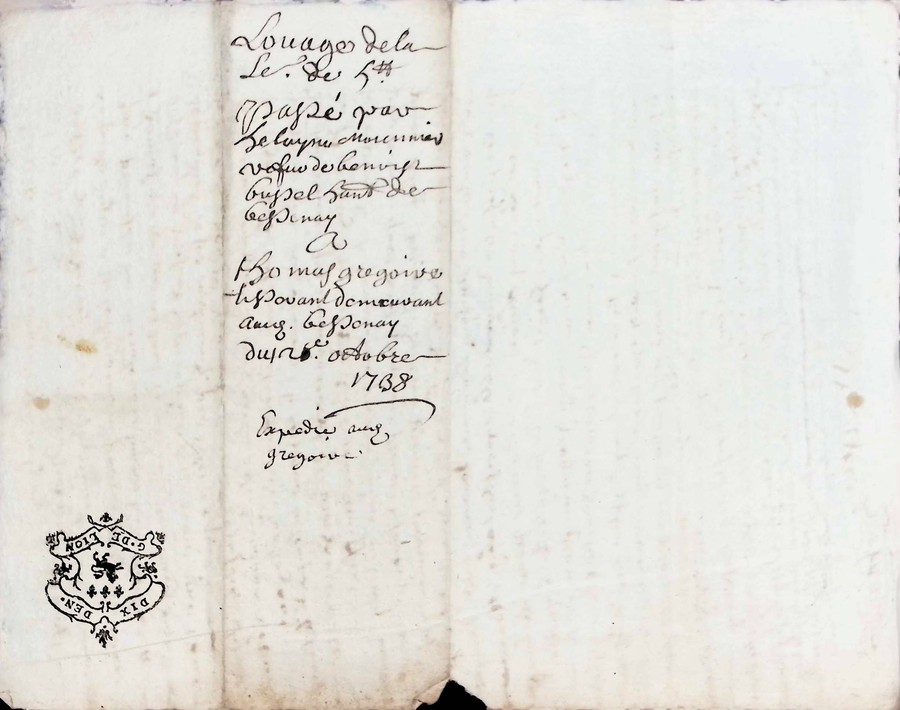 Louage de la
Se.^r de 5^tt
passé par
helayne Mounnier
vefve de benoist
bussel hant de
bessenay
A
thomas gregoire
tisserant demeurant
aud. bessenay
du 25.^e octobre
1738
Expedié aud
gregoire.
G. DE LION
DIX DEN.